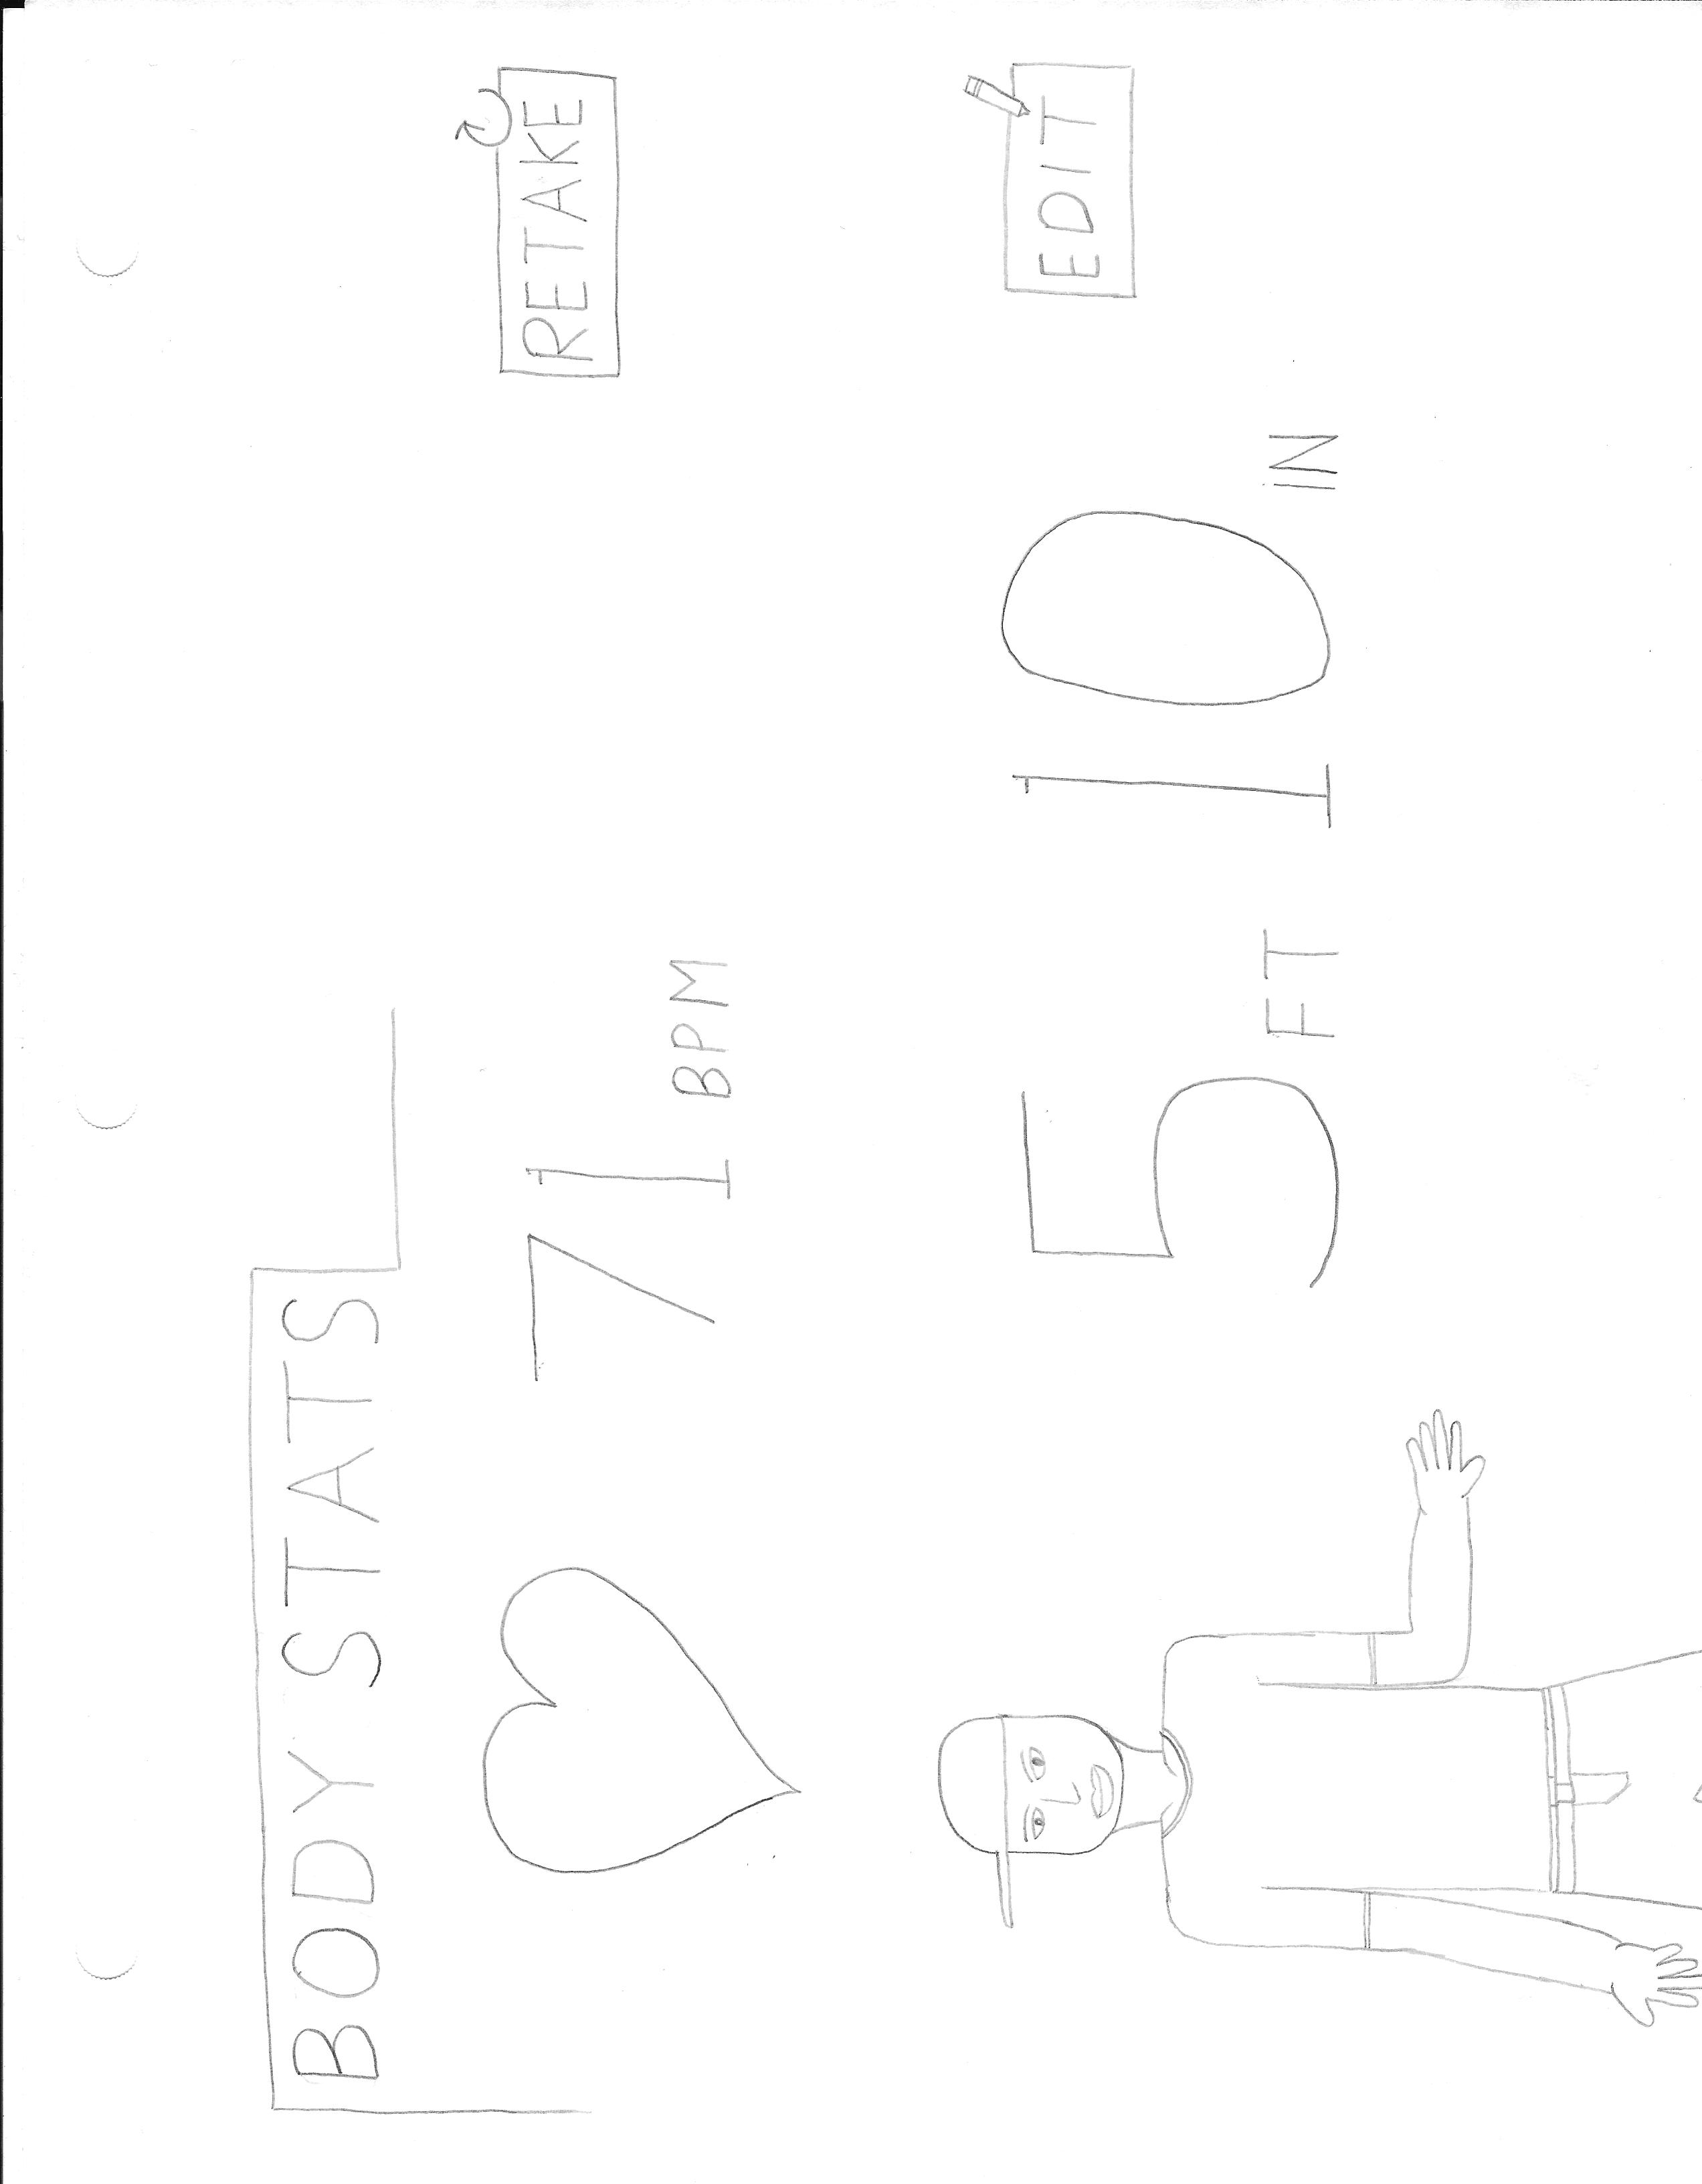 BODY STATS
71 BPM
RETAKE
5 FT 10 iN
EDIT